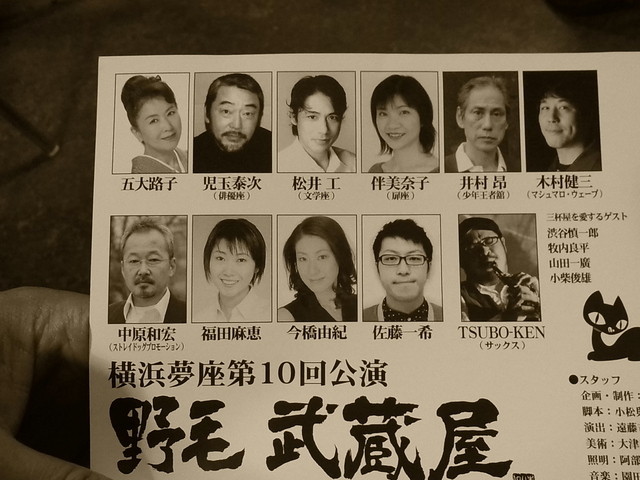 五大路子
児玉泰次
(俳優座)
松井 工
(文学座)
伴美奈子
(扉座)
井村 昂
(少年王者舘)
木村健三
(マシュマロ・ウェーブ)
中原和宏
(ストレイドッグプロモーション)
福田麻恵
今橋由紀
佐藤一希
TSUBO-KEN
(サックス)
三杯屋を愛するゲスト
渋谷慎一郎
牧内良平
山田一廣
小柴俊雄
横浜夢座第10回公演
野毛 武蔵屋
●スタッフ
企画・制作:
脚本:小松
演出:遠藤
美術:大津
照明:阿部
音楽:園田